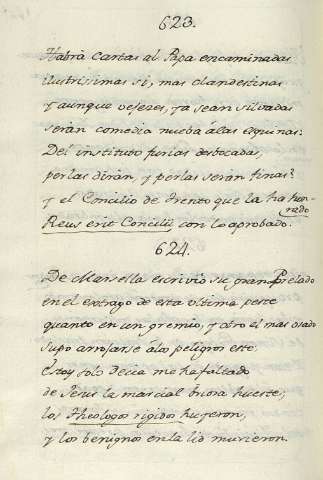 623.
Habrà Cartas al Papa encaminadas
ilustrisimas si, mas clandestinas
y aunque vejezes, ya sean silvadas
seràn comedia nueba á las esquinas:
Del instituto furias desbocadas,
perlas diràn, y perlas seràn finas?
y el Concilio de Trento que la ha honrado
Reus erit Concilii con lo aprobado.
624.
De Marsella escrivió su gran Prelado
en el estrago de esta ultima peste
quanto en un gremio, y otro el mas osado
supo arrojarse á los peligros este.
Estoy solo decia me ha faltado
de Jesus la marcial buena hueste;
los Theologos rigidos huyeron,
y los benignos en la lid murieron.